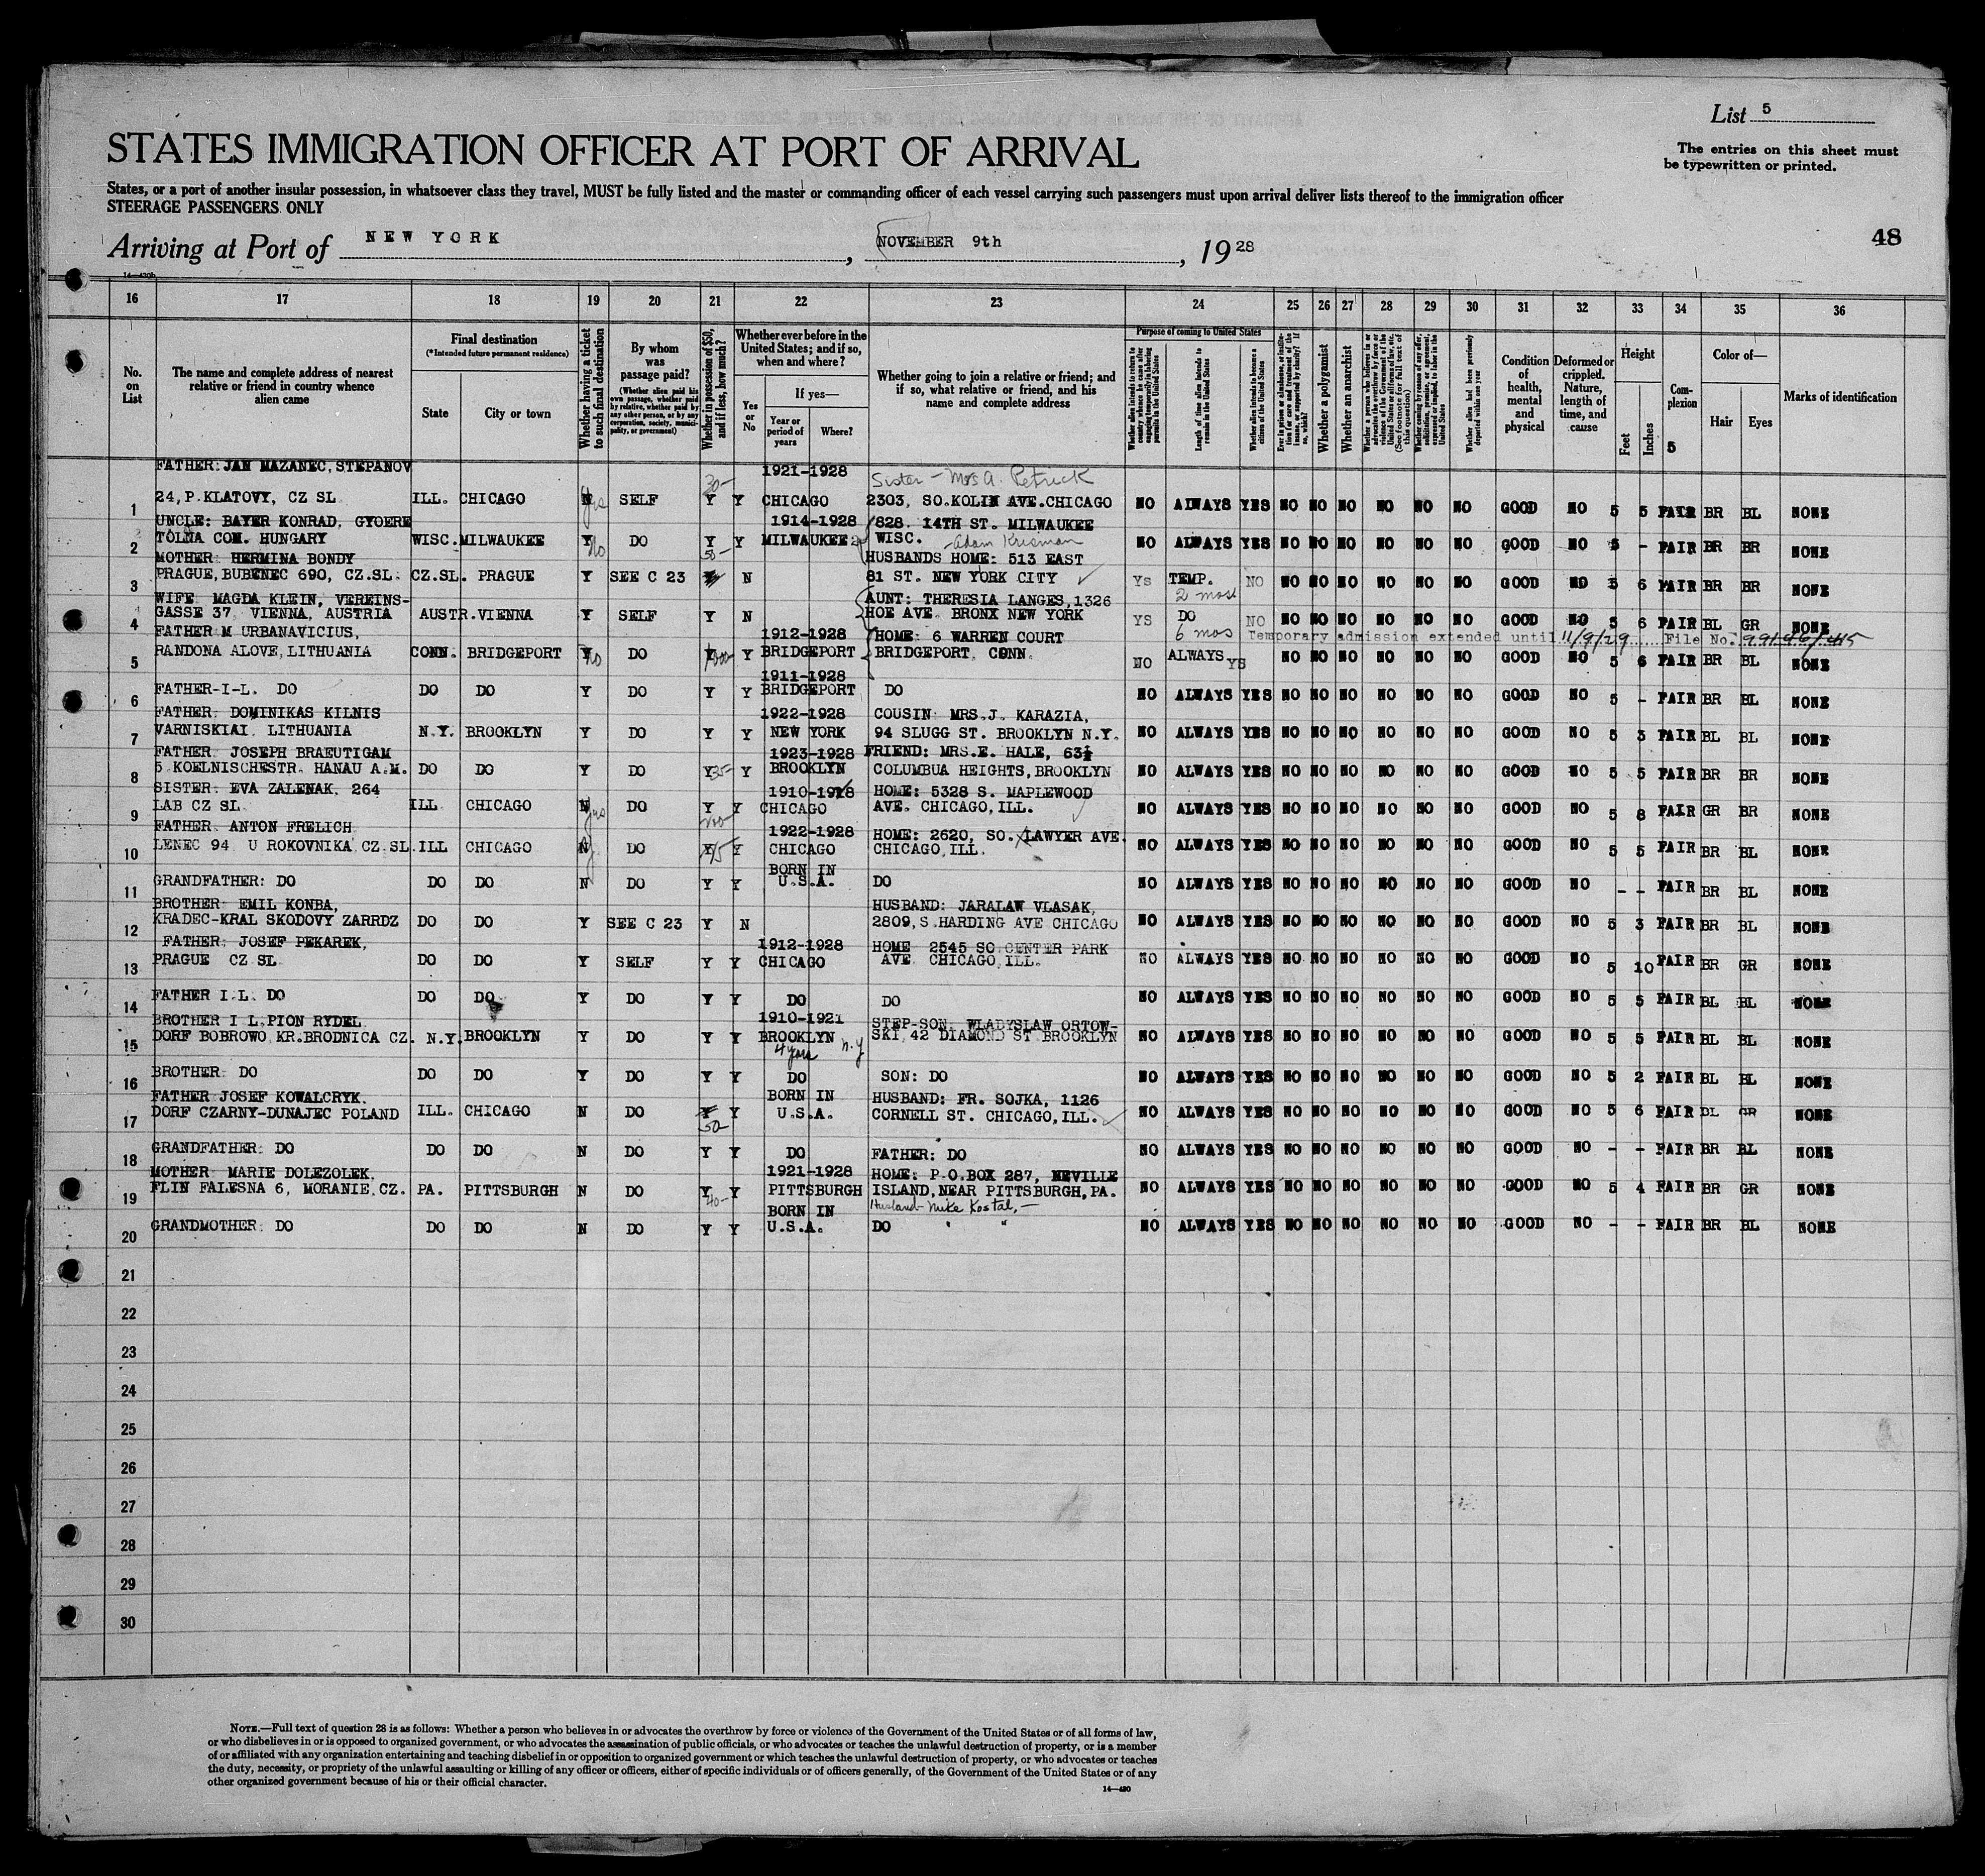 List 5
STATES IMMIGRATION OFFICER AT PORT OF ARRIVAL
The entries on this sheet must
be typewritten or printed.
States, or a port of another insular possession, in whatsoever class they travel, MUST be fully listed and the master or commanding officer of each vessel carrying such passengers must upon arrival deliver lists thereof to the immigration officer
STEERAGE PASSENGERS ONLY
Arriving at Port of NEW YORK, NOVEMBER 9th, 1928
48
16 17 18 19 20 21 22 23 24 25 26 27 28 29 30 31 32 33 34 35 36
No. on List
The name and complete address of nearest relative or friend in country whence alien came
Final destination
(*Intended future permanent residence)
State
City or town
Whether having a ticket to such final destination
By whom was passage paid?
(Whether alien paid his own passage, whether paid by relative, whether paid by any other person, or by any corporation, society, municipality, or government)
Whether in possession of $50, and if less, how much?
Whether ever before in the United States; and if so, when and where?
Yes or No
If yes—
Year or period of years
Where?
Whether going to join a relative or friend; and if so, what relative or friend, and his name and complete address
Purpose of coming to United States
Length of time alien intends to remain in the United States
Whether alien intends to become a citizen of the United States
Whether a polygamist
Whether an anarchist
(See footnote for full text of this question)
Condition of health, mental and physical
Deformed or crippled. Nature, length of time, and cause
Height
Feet
Inches
Complexion
5
Color of—
Hair
Eyes
Marks of identification
FATHER: JAN MAZANEC, STEPANOV 1921-1928 Sister - Mrs A. Petrick
1 24, P. KLATOVY, CZ SL ILL. CHICAGO N SELF Y Y CHICAGO 2303, SO. KOLIN AVE. CHICAGO NO ALWAYS YES NO NO NO NO NO NO GOOD NO 5 5 FAIR BR BL NONE
UNCLE: BAYER KONRAD, GYOERE 1914-1928 828. 14TH ST. MILWAUKEE
2 TOLNA COM. HUNGARY WISC. MILWAUKEE Y DO Y Y MILWAUKEE WISC. -Adam Krisman NO ALWAYS YES NO NO NO NO NO NO GOOD NO 5 - FAIR BR BR NONE
MOTHER: HERMINA BONDY HUSBANDS HOME: 513 EAST
3 PRAGUE, BUBENEC 690, CZ.SL. CZ.SL. PRAGUE Y SEE C 23 N 81 ST. NEW YORK CITY YS TEMP. NO NO NO NO NO NO NO GOOD NO 5 6 FAIR BR BR NONE
WIFE MAGDA KLEIN, VEREINS- AUNT: THERESIA LANGES, 1326 2 mos
4 GASSE 37, VIENNA, AUSTRIA AUSTR. VIENNA Y SELF Y N HOE AVE. BRONX NEW YORK YS DO NO NO NO NO NO NO NO GOOD NO 5 6 FAIR BL GR NONE
FATHER M URBANAVICIUS, 1912-1928 HOME: 6 WARREN COURT 6 mos Temporary admission extended until 11/9/29 File No. 99146/415
5 RANDONA ALOVE, LITHUANIA CONN. BRIDGEPORT DO Y BRIDGEPORT BRIDGEPORT CONN. NO ALWAYS YS NO NO NO NO NO NO GOOD NO 5 6 FAIR BR BL NONE
1911-1928
6 FATHER-I-L. DO DO DO Y DO Y Y BRIDGEPORT DO NO ALWAYS YES NO NO NO NO NO NO GOOD NO 5 - FAIR BR BL NONE
FATHER: DOMINIKAS KILNIS 1922-1928 COUSIN: MRS. J. KARAZIA,
7 VARNISKIAI, LITHUANIA N.Y. BROOKLYN Y DO Y Y NEW YORK 94 SLUGG ST. BROOKLYN N.Y. NO ALWAYS YES NO NO NO NO NO NO GOOD NO 5 3 FAIR BL BL NONE
FATHER: JOSEPH BRAEUTIGAM 1923-1928 FRIEND: MRS.E. HALE, 63½
8 5 KOELNISCHESTR. HANAU A.M. DO DO Y DO Y 35- Y BROOKLYN COLUMBUA HEIGHTS, BROOKLYN NO ALWAYS YES NO NO NO NO NO NO GOOD NO 5 5 FAIR BR BR NONE
SISTER: EVA ZALENAK, 264 1910-1928 HOME: 5328 S. MAPLEWOOD
9 LAB CZ SL ILL CHICAGO N DO Y Y CHICAGO AVE. CHICAGO, ILL. NO ALWAYS YES NO NO NO NO NO NO GOOD NO 5 8 FAIR GR BR NONE
FATHER: ANTON FRELICH 1922-1928 HOME: 2620, SO. LAWYER AVE.
10 LENEC 94 U ROKOVNIKA CZ SL. ILL CHICAGO N DO Y Y CHICAGO CHICAGO, ILL. NO ALWAYS YES NO NO NO NO NO NO GOOD NO 5 5 FAIR BR BL NONE
BORN IN
11 GRANDFATHER: DO DO DO N DO Y Y U.S.A. DO NO ALWAYS YES NO NO NO NO NO NO GOOD NO - - FAIR BR BL NONE
BROTHER: EMIL KONBA, HUSBAND: JARALAW VLASAK,
12 KRADEC-KRAL SKODOVY ZARRDZ DO DO Y SEE C 23 Y N 2809, S. HARDING AVE CHICAGO NO ALWAYS YES NO NO NO NO NO NO GOOD NO 5 3 FAIR BR BL NONE
FATHER: JOSEF PEKAREK, 1912-1928 HOME 2545 SO CENTER PARK
13 PRAGUE CZ SL DO DO Y SELF Y Y CHICAGO AVE CHICAGO, ILL. NO ALWAYS YES NO NO NO NO NO NO GOOD NO 5 10 FAIR BR GR NONE
14 FATHER I.L. DO DO DO Y DO Y Y DO DO NO ALWAYS YES NO NO NO NO NO NO GOOD NO 5 5 FAIR BL BL NONE
BROTHER I L PION RYDEL 1910-1921 STEP-SON: WLADYSLAW ORTOW-
15 DORF BOBROWO KR. BRODNICA CZ. N.Y. BROOKLYN Y DO Y Y BROOKLYN SKI 42 DIAMOND ST BROOKLYN NO ALWAYS YES NO NO NO NO NO NO GOOD NO 5 5 FAIR BL BL NONE
4 years n.y
16 BROTHER: DO DO DO Y DO Y Y DO SON: DO NO ALWAYS YES NO NO NO NO NO NO GOOD NO 5 2 FAIR BL BL NONE
FATHER JOSEF KOWALCRYK. BORN IN HUSBAND: FR. SOJKA, 1126
17 DORF CZARNY-DUNAJEC POLAND ILL. CHICAGO N DO Y Y U.S.A. CORNELL ST. CHICAGO, ILL. NO ALWAYS YES NO NO NO NO NO NO GOOD NO 5 6 FAIR BL GR NONE
50-
18 GRANDFATHER: DO DO DO N DO Y Y DO FATHER: DO NO ALWAYS YES NO NO NO NO NO NO GOOD NO - - FAIR BR BL NONE
MOTHER: MARIE DOLEZOLEK. 1921-1928 HOME: P.O.BOX 287, NEVILLE
19 FLIN FALESNA 6, MORANIE CZ. PA. PITTSBURGH N DO Y 40- Y PITTSBURGH ISLAND, NEAR PITTSBURGH, PA. NO ALWAYS YES NO NO NO NO NO NO GOOD NO 5 4 FAIR BR GR NONE
BORN IN Husband Mike Kostal, -
20 GRANDMOTHER: DO DO DO N DO Y Y U.S.A. DO " " NO ALWAYS YES NO NO NO NO NO NO GOOD NO - - FAIR BR BL NONE
21
22
23
24
25
26
27
28
29
30
NOTE.—Full text of question 28 is as follows: Whether a person who believes in or advocates the overthrow by force or violence of the Government of the United States or of all forms of law,
or who disbelieves in or is opposed to organized government, or who advocates the assassination of public officials, or who advocates or teaches the unlawful destruction of property, or is a member
of or affiliated with any organization entertaining and teaching disbelief in or opposition to organized government or which teaches the unlawful destruction of property, or who advocates or teaches
the duty, necessity, or propriety of the unlawful assaulting or killing of any officer or officers, either of specific individuals or of officers generally, of the Government of the United States or of any
other organized government because of his or their official character.
14—430